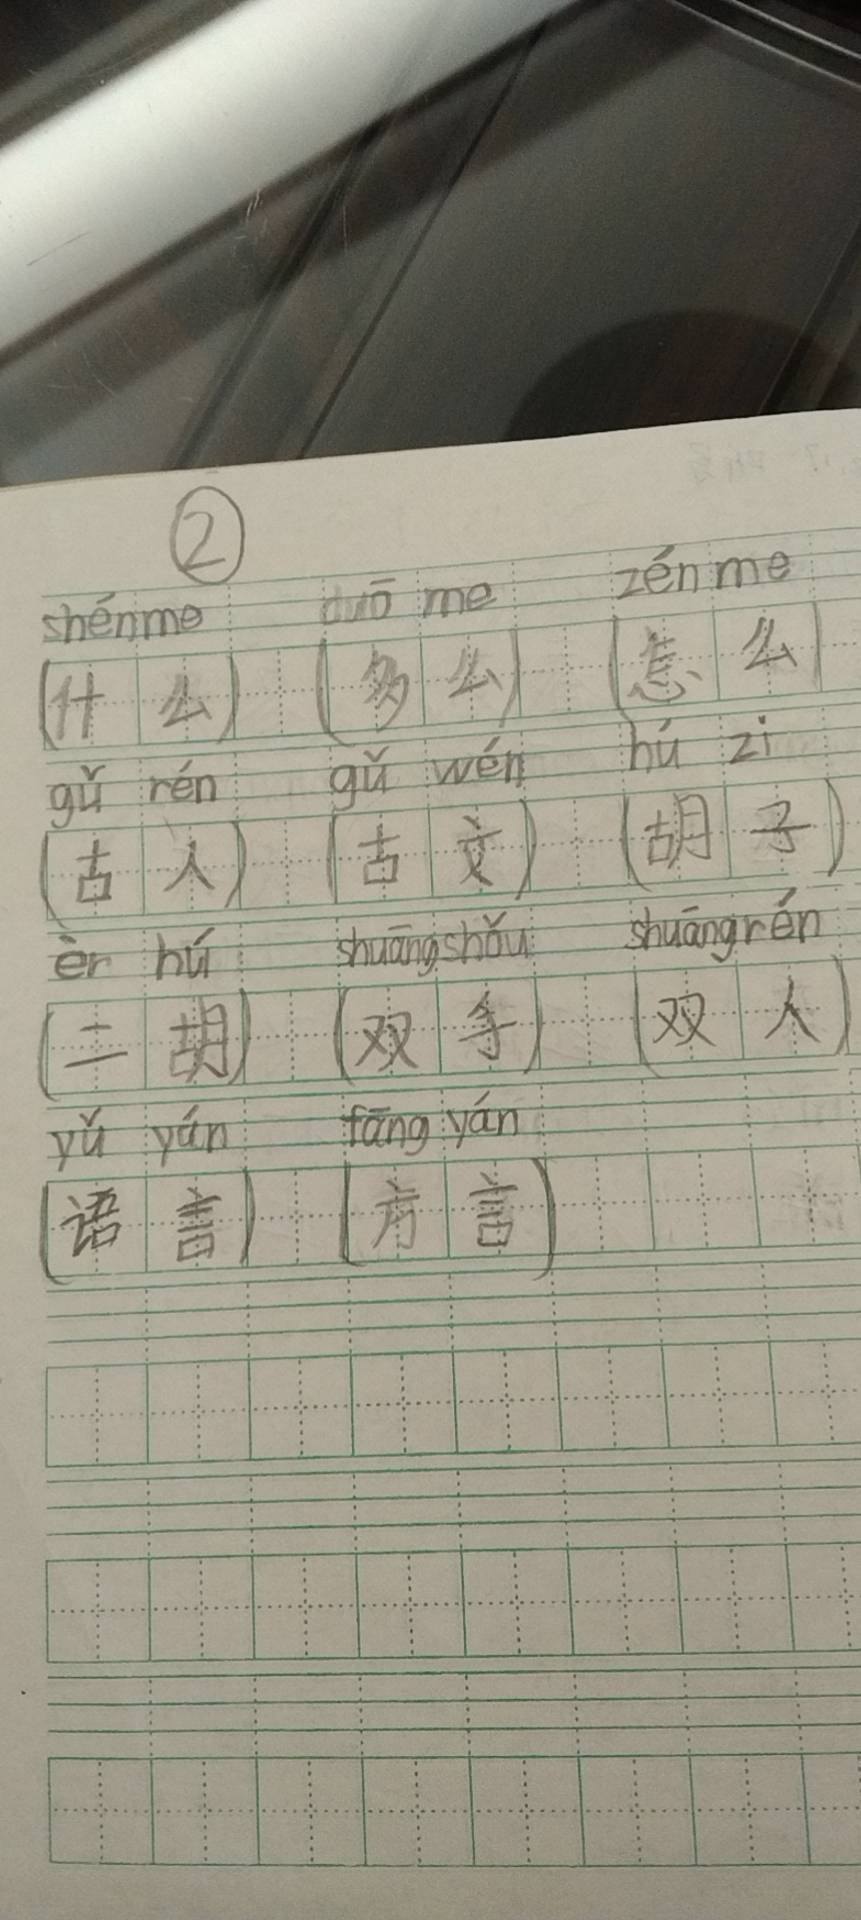 ②
shénme duō me zénme
(什么) (多么) (怎么)
gǔ rén gǔ wén hú zi
(古人) (古文) (胡子)
èr hú shuāngshǒu shuāngrén
(二胡) (双手) (双人)
yǔ yán fāng yán
(语言) (方言)